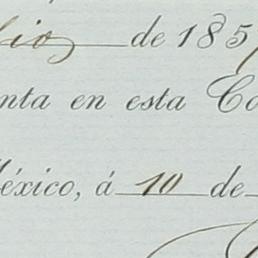 lio de 185
nta en esta Co
éxico, á 10 de